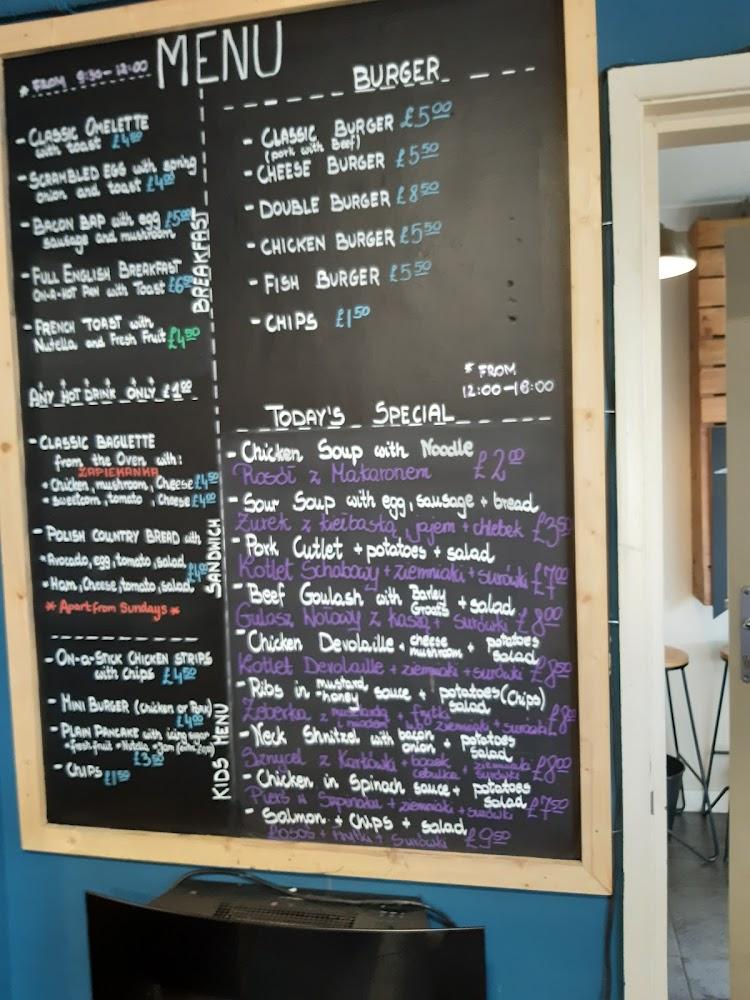 MENU
* FROM 9:30-12:00
- CLASSIC OMELETTE
with toast £4
- SCRAMBLED EGG with spring
onion and toast £4
- BACON BAP with egg £5
sausage and mushroom
- FULL ENGLISH BREAKFAST
ON-A-HOT PAN with Toast £6
- FRENCH TOAST with
Nutella and Fresh Fruit £4.50
BREAKFAST
ANY HOT DRINK ONLY £1.00
- CLASSIC BAGUETTE
from the Oven with:
ZAPIEKANKA
* Chicken, mushroom, Cheese £4.50
* sweetcorn, tomato, Cheese £4.00
- POLISH COUNTRY BREAD with
* Avocado, egg, tomato, salad
* Ham, Cheese, tomato, salad
* Apart from Sundays *
SANDWICH
- ON-a-STICK CHICKEN STRIPS
with chips £4.50
- MINI BURGER (chicken or Pork)
£4.00
- PLAIN PANCAKE with icing sugar
* fresh fruit * Nutella * Jam
- CHIPS £1.50
KIDS MENU
BURGER
- CLASSIC BURGER £5.00
(pork with Beef)
- CHEESE BURGER £5.50
- DOUBLE BURGER £8.50
- CHICKEN BURGER £5.50
- FISH BURGER £5.50
- CHIPS £1.50
* FROM
12:00-18:00
TODAY'S SPECIAL
- Chicken Soup with Noodle
Rosół z Makaronem £2.00
- Sour Soup with egg, sausage + bread
Żurek z kiełbasą, jajem + chlebek £3.50
- Pork Cutlet + potatoes + salad
Kotlet Schabowy + ziemniaki + surówki £7.00
- Beef Goulash with Barley Groats + salad
Gulasz Wołowy z kaszą + surówki £8.00
- Chicken Devolaille + cheese mushroom + potatoes salad
Kotlet Devolaille + ziemniaki + surówki £8.50
- Ribs in mustard-honey sauce + potatoes (Chips) salad
Żeberka
- Neck Shnitzel with bacon onion + potatoes salad
Sznycel z Karkówki + boczek cebulka + ziemniaki surówki £8.00
- Chicken in Spinach sauce + potatoes salad
+ ziemniaki + surówki £7.50
- Salmon + chips + salad
Łosoś + frytki + surówki £9.50